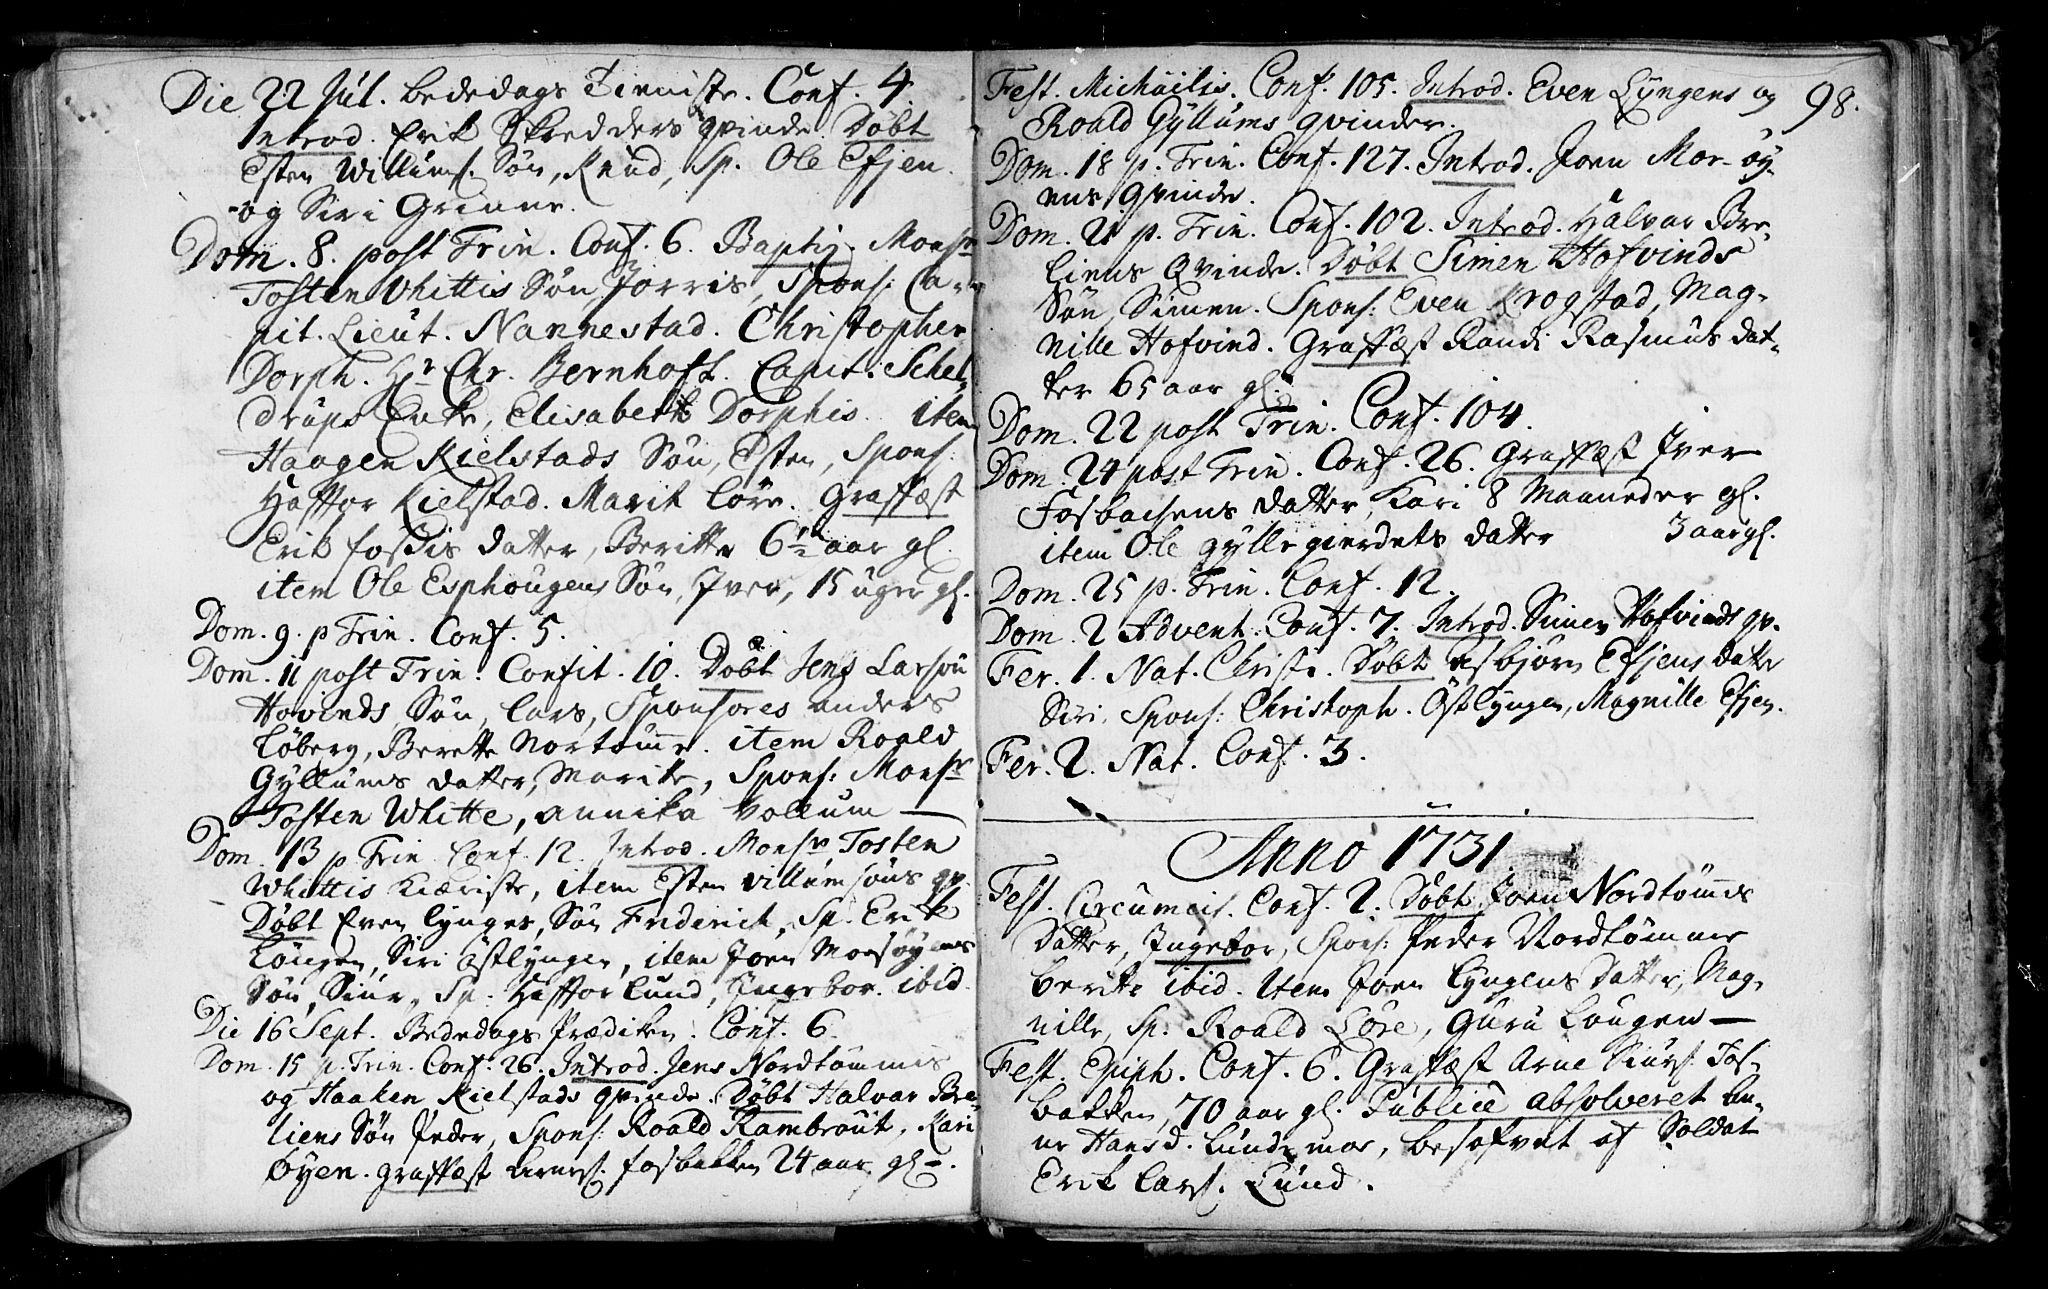 Die 22 Jul. bededags Tieniste. Conf. 4.
Introd. Erik Skredders qvinde. Døbt
Esten Willums. Søn, Knud, Sp. Ole Efjen
og Siri Grinne.
Dom. 8. post Trin. Conf. 6. Baptiz. Monsr
Tosten Whittis Søn Jorris, Spons: Ca-
pit. Lieut. Nannestad. Christopher
Dorph. Hr Chr. Bernhoft. Capit. Schel-
drups Enke, Elisabeth Dorphis item
Haagen Kielstads Søn, Esten, Spons:
Haffor Kielstad. Marit Løre. Graffæst
Erik fossis datter, Beritte 6½ aar gl.
item Ole Esphougens Søn, Iver, 15 uger gl.
Dom. 9. p Trin. Conf. 5.
Dom. 11 post Trin. Confit. 10. Døbt Jens Larsøn
Hovinds Søn, Lars, Sponsores anders
Løberg, Berette Nortømme. item Roald
Gyllums datter, Marite, Spons: Monsr
Tosten Whitte, annika Vollum —
Dom. 13 p Trin. Conf. 12. Introd. Monsr Tosten
Whittis Kieriste, item Esten Villumsøns qv.
Døbt Even Lynges, Søn Friderich, Sp. Erik
Lougen, Siri Østlyngen, item Joen Morsøyens
Søn, Siur, Sp. Haffor Lund, Ingebor. ibid.
Die 16 Sept. Bededags Prædiken. Conf. 6.
Dom. 15 p. Trin. Conf. 26. Introd. Jens Nordtømmis
og Haaken Kielstads qvinde. Døbt Halvar Bre-
liens Søn Peder, Spons: Roald Rambrout, Kari
Øyen. graffæst fosbakken 24 aar gl.
Fest. Michaëlis. Conf. 105. Introd. Even Lyngens og 98.
Roald Gyllums qvinder.
Dom. 18 p. Trin. Conf. 127. Introd. Joen Mor-øy-
ens qvinde.
Dom. 21 p. Trin. Conf. 102. Introd. Halvar Bre-
liens Qvinde. Døbt Simen Hofvinds
Søn, Simen. Spons: Even Krogstad, Mag-
nille Hofvind. Graffæst Randi Rasmus dat-
ter 65 aar gl.
Dom. 22 post Trin. Conf. 104.
Dom. 24 post Trin. Conf. 26. Graffæst Iver
Fosbachens datter, Kari 8 Maaneder gl.
item Ole gyllegierdets datter 3 aar gl.
Dom. 25 p. Trin. Conf. 12.
Dom. 2 Advent. Conf. 7. Introd. Simen Hofvinds qv.
Fer. 1. Nat. Christi. Døbt Esbjørn Efjens datter
Siri, Spons: Christoph. Østlyngen, Magnille Efjen.
Fer. 2. Nat. Conf. 3.
Anno 1731
Fest. Circumcis. Conf. 2. Døbt Joen Nordtømmis
Datter, Ingebor, Spons: Peder Nordtømme
berite ibid. Item Joen Lyngens Datter, Mag-
nille, Sp: Roald Løre, Guru Lougen —
Fest. Epiph. Conf. 6. Graffæst Arne Siurs. Fos-
bakken, 70 aar gl. Publicè absolveret An-
ne Hans d. Lundemoe, besofvet af Soldat
Erik Lars. Lund.